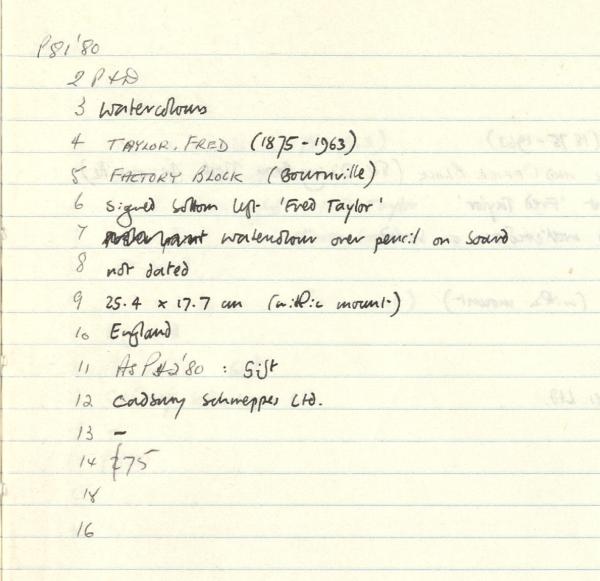 P81'80
2 P+D
3 Watercolours
4 TAYLOR, FRED (1875-1963)
5 FACTORY BLOCK (Bournville)
6 signed bottom left 'Fred Taylor'
7 watercolour over pencil on board
8 not dated
9 25.4 x 17.7 cm (within mount)
10 England
11 As P+D'80 : Gift
12 Cadbury Schweppes Ltd.
13 -
14 £75
18
16